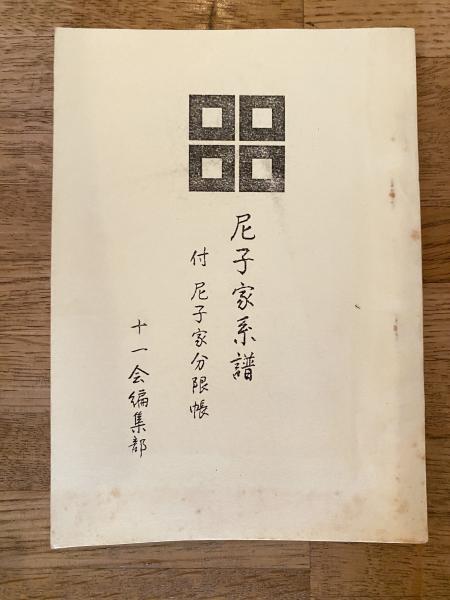 尼子家系譜
付 尼子家分限帳
十一会編集部